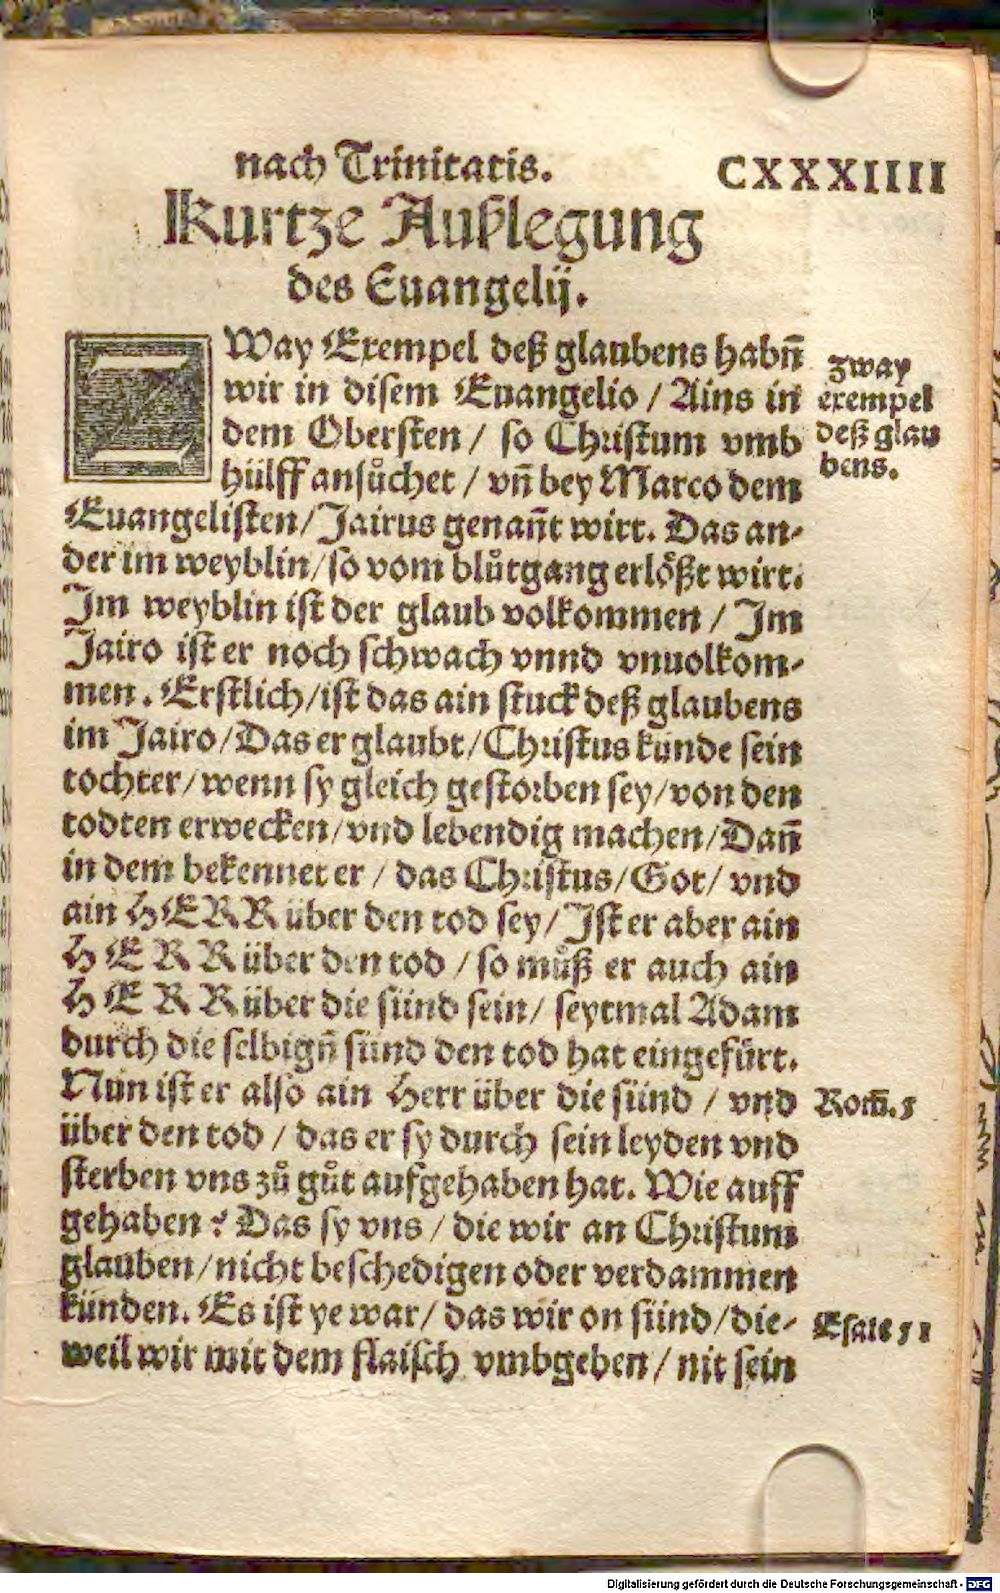 nach Trinitatis.
CXXXIIII
Kurtze Außlegung
des Euangelij.
ZWay Exempel deß glaubens habñ
wir in disem Euangelio / Ains in
dem Obersten / so Christum vmb
hülff ansůchet / vñ bey Marco dem
Euangelisten / Jairus genañt wirt. Das an-
der im weyblin / so vom blůtgang erlößt wirt.
Im weyblin ist der glaub volkommen / Im
Jairo ist er noch schwach vnnd vnuolkom-
men. Erstlich / ist das ain stuck deß glaubens
im Jairo / Das er glaubt / Christus kunde sein
tochter / wenn sy gleich gestorben sey / von den
todten erwecken / vnd lebendig machen / Dañ
in dem bekennet er / das Christus / Got / vnd
ain HERR über den tod sey / Ist er aber ain
HERR über den tod / so můß er auch ain
HERR über die sünd sein / seytmal Adam
durch die selbigñ sünd den tod hat eingefürt.
Nun ist er also ain Herr über die sünd / vnd
über den tod / das er sy durch sein leyden vnd
sterben vns zů gůt aufgehaben hat. Wie auff
gehaben ? Das sy vns / die wir an Christum
glauben / nicht beschedigen oder verdammen
künden. Es ist ye war / das wir on sünd / die-
weil wir mit dem flaisch vmbgeben / nit sein
zway
exempel
deß glau
bens.
Rom̃. 5
Esaie 51
Digitalisierung gefördert durch die Deutsche Forschungsgemeinschaft - DFG